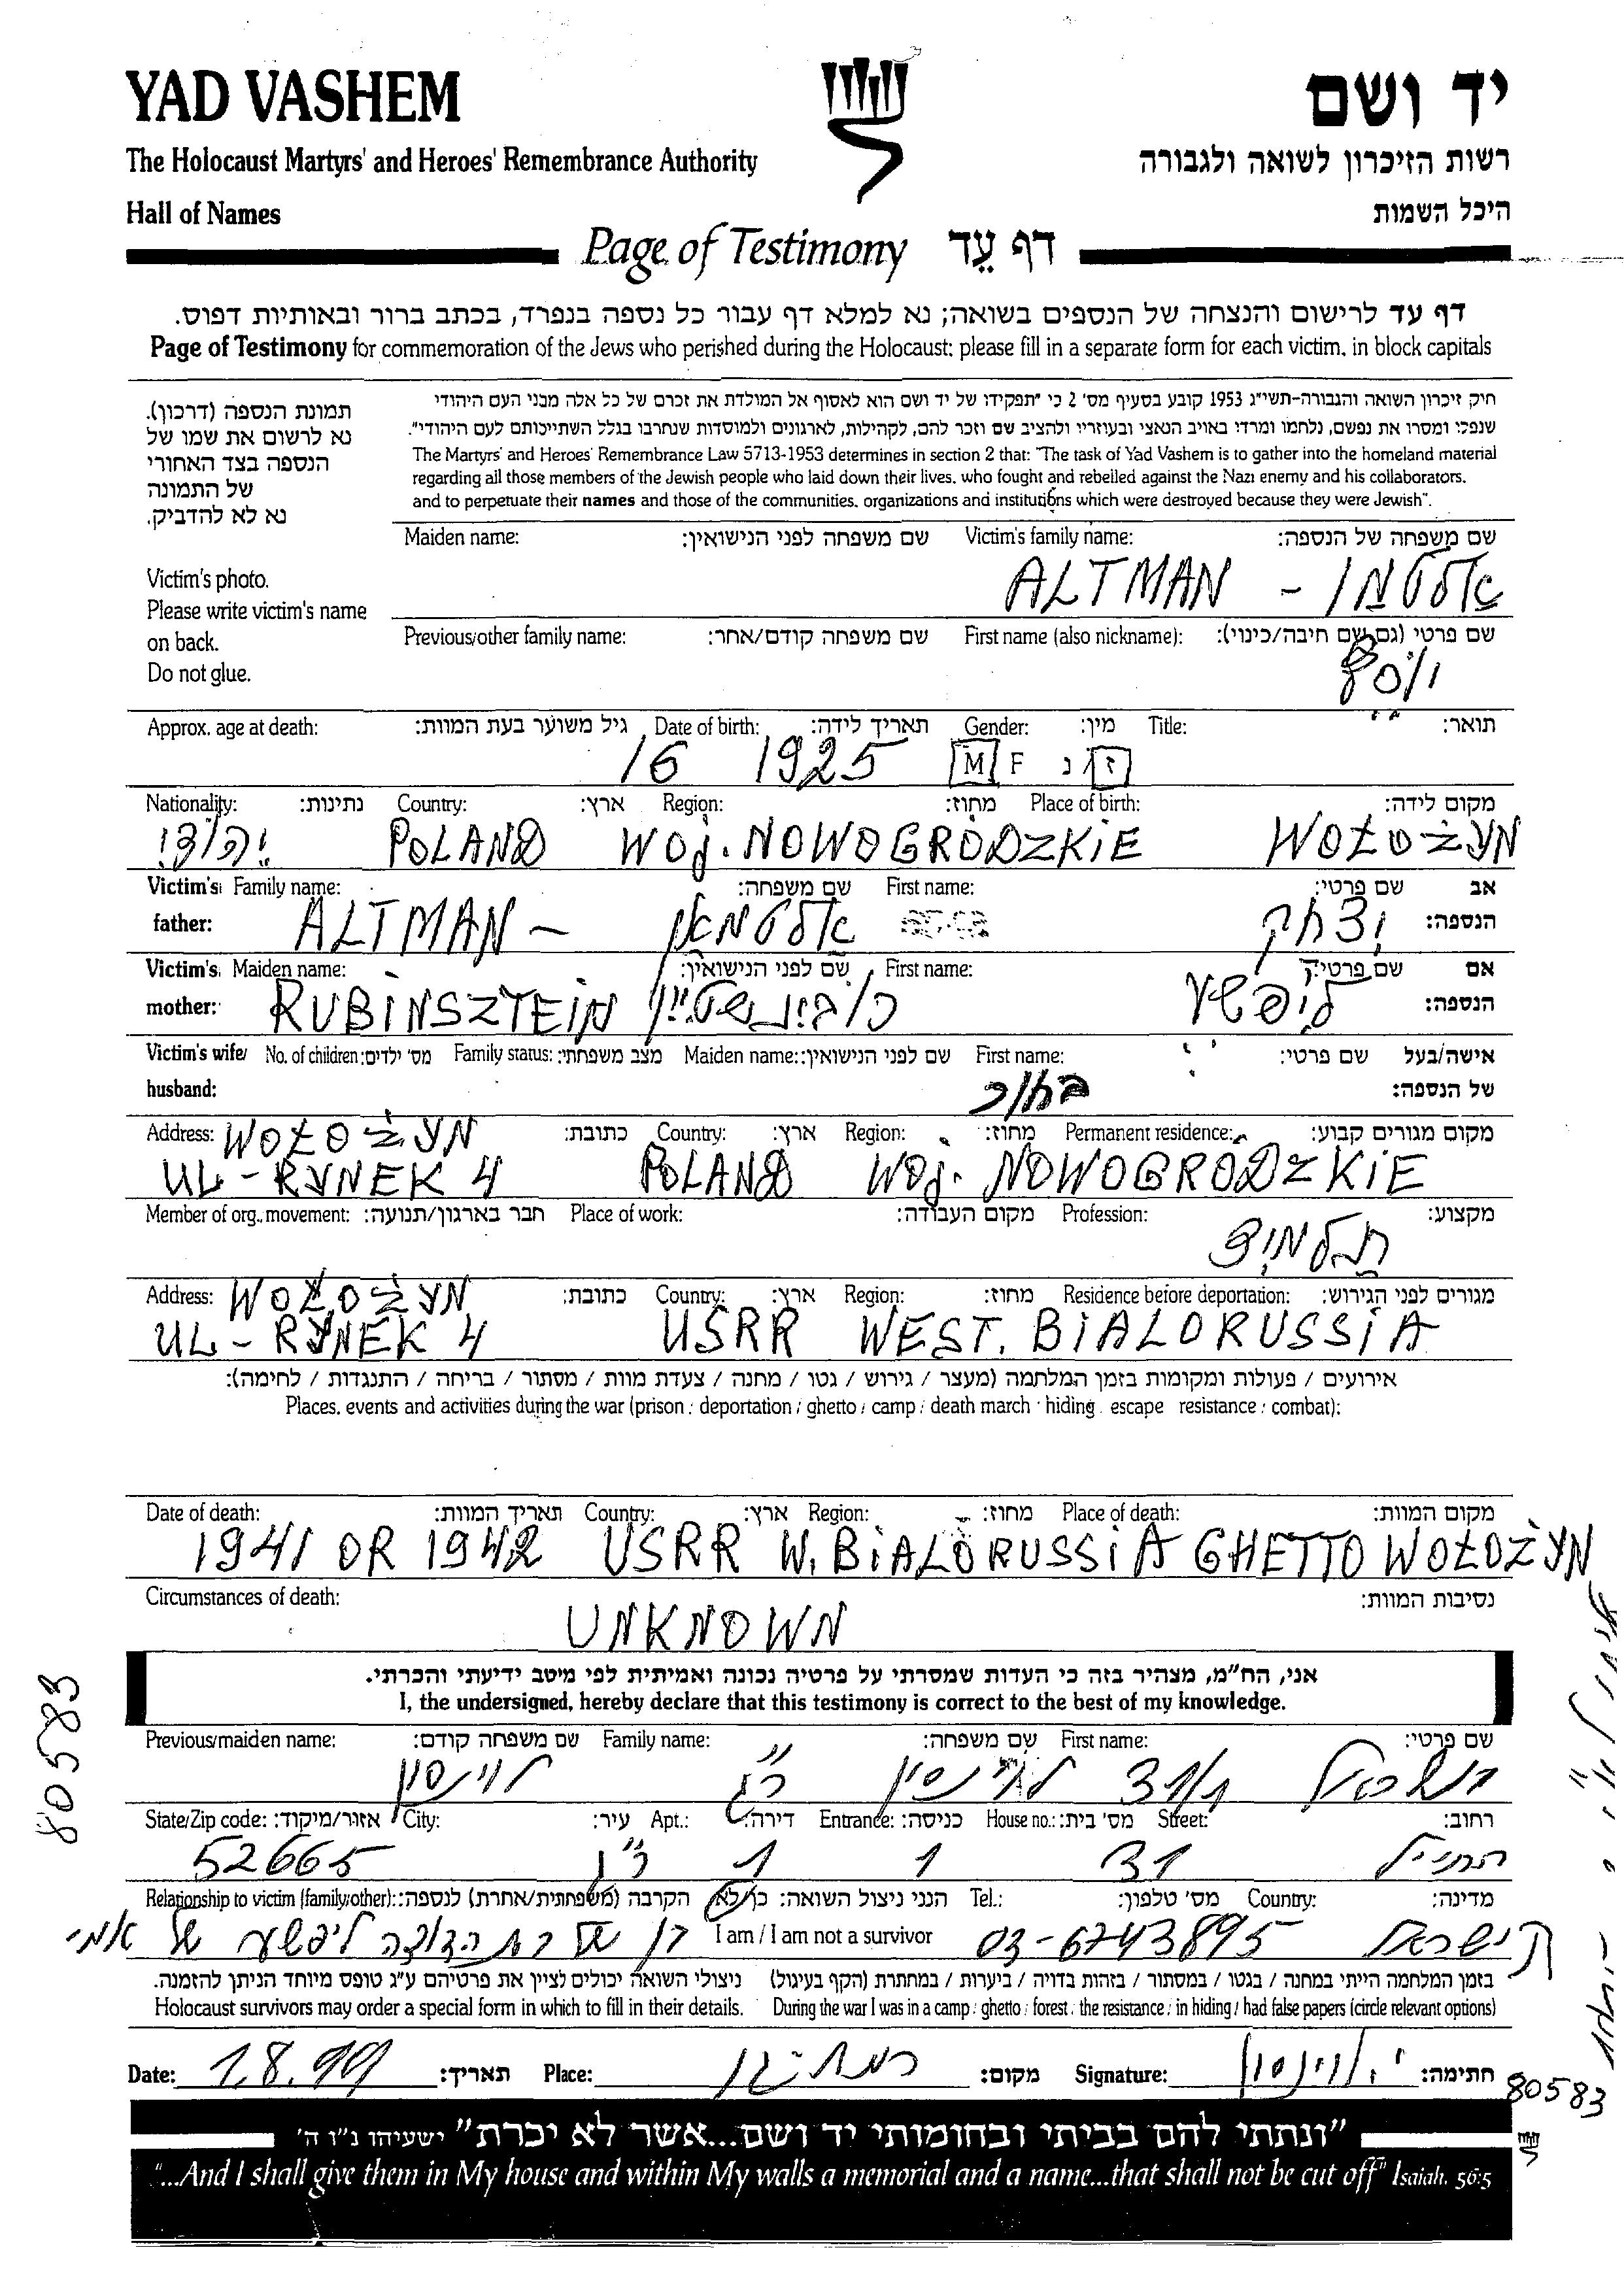 YAD VASHEM
יד ושם
The Holocaust Martyrs' and Heroes' Remembrance Authority
רשות הזיכרון לשואה ולגבורה
Hall of Names
היכל השמות
Page of Testimony דף עֵד
דף עד לרישום והנצחה של הנספים בשואה; נא למלא דף עבור כל נספה בנפרד, בכתב ברור ובאותיות דפוס.
Page of Testimony for commemoration of the Jews who perished during the Holocaust; please fill in a separate form for each victim, in block capitals
תמונת הנספה (דרכון).
נא לרשום את שמו של
הנספה בצד האחורי
של התמונה
נא לא להדביק.
Victim's photo.
Please write victim's name
on back.
Do not glue.
חיק זיכרון השואה והגבורה-תשי״ג 1953 קובע בסעיף מס' 2 כי "תפקידו של יד ושם הוא לאסוף אל המולדת את זכרם של כל אלה מבני העם היהודי
שנפלו ומסרו את נפשם, נלחמו ומרדו באויב הנאצי ובעוזריו ולהציב שם וזכר להם, לקהילות, לארגונים ולמוסדות שנחרבו בגלל השתייכותם לעם היהודי".
The Martyrs' and Heroes' Remembrance Law 5713-1953 determines in section 2 that: "The task of Yad Vashem is to gather into the homeland material
regarding all those members of the Jewish people who laid down their lives, who fought and rebelled against the Nazi enemy and his collaborators,
and to perpetuate their names and those of the communities, organizations and institutions which were destroyed because they were Jewish".
Maiden name: שם משפחה לפני הנישואין: Victim's family name: שם משפחה של הנספה:
ALTMAN - אלטמן
Previous/other family name: שם משפחה קודם/אחר: First name (also nickname): שם פרטי (גם שם חיבה/כינוי):
יוסף
Approx. age at death: גיל משוער בעת המוות: Date of birth: תאריך לידה: Gender: מין: Title: תואר:
16 1925 M F ז נ
Nationality: נתינות: Country: ארץ: Region: מחוז: Place of birth: מקום לידה:
יהודי POLAND WOJ. NOWOGRÓDZKIE WOŁOŻYN
Victim's father: Family name: שם משפחה: First name: שם פרטי: אב הנספה:
ALTMAN - אלטמאן יצחק
Victim's mother: Maiden name: שם לפני הנישואין: First name: שם פרטי: אם הנספה:
RUBINSZTEIN רובינשטיין ליפשע
Victim's wife/ husband: No. of children: מס' ילדים: Family status: מצב משפחתי: Maiden name: שם לפני הנישואין: First name: שם פרטי: אישה/בעל של הנספה:
בחור
Address: כתובת: Country: ארץ: Region: מחוז: Permanent residence: מקום מגורים קבוע:
WOŁOŻYN
UL - RYNEK 4 POLAND WOJ. NOWOGRÓDZKIE
Member of org., movement: חבר בארגון/תנועה: Place of work: מקום העבודה: Profession: מקצוע:
תלמיד
Address: כתובת: Country: ארץ: Region: מחוז: Residence before deportation: מגורים לפני הגירוש:
WOŁOŻYN
UL - RYNEK 4 USRR WEST. BIALORUSSIA
אירועים / פעולות ומקומות בזמן המלחמה (מעצר / גירוש / גטו / מחנה / צעדת מוות / מסתור / בריחה / התנגדות / לחימה):
Places, events and activities during the war (prison / deportation / ghetto / camp / death march / hiding / escape / resistance / combat):
Date of death: תאריך המוות: Country: ארץ: Region: מחוז: Place of death: מקום המוות:
1941 OR 1942 USRR W. BIALORUSSIA GHETTO WOŁOŻYN
Circumstances of death: נסיבות המוות:
UNKNOWN
אני, הח״מ, מצהיר בזה כי העדות שמסרתי על פרטיה נכונה ואמיתית לפי מיטב ידיעתי והכרתי.
I, the undersigned, hereby declare that this testimony is correct to the best of my knowledge.
Previous/maiden name: שם משפחה קודם: Family name: שם משפחה: First name: שם פרטי:
לוינסון
State/Zip code: אזור/מיקוד: City: עיר: Apt.: דירה: Entrance: כניסה: House no.: מס' בית: Street: רחוב:
52665 ר"ג 1 1 31
Relationship to victim (family/other): הקרבה (משפחתית/אחרת) לנספה: הנני ניצול השואה: כן/לא Tel.: מס' טלפון: Country: מדינה:
בן של בת הדודה ליפשע של אמי I am / I am not a survivor 03-6743895 ישראל
בזמן המלחמה הייתי במחנה / בגטו / במסתור / בזהות בדויה / ביערות / במחתרת (הקף בעיגול) ניצולי השואה יכולים לציין את פרטיהם ע״ג טופס מיוחד הניתן להזמנה.
Holocaust survivors may order a special form in which to fill in their details. During the war I was in a camp / ghetto / forest / the resistance / in hiding / had false papers (circle relevant options)
Date: 1.8.99 תאריך: Place: רמת-גן מקום: Signature: י. לוינסון חתימה:
80583
80583
"ונתתי להם בביתי ובחומותי יד ושם...אשר לא יכרת" ישעיהו נ״ו ה'
"...And I shall give them in My house and within My walls a memorial and a name...that shall not be cut off" Isaiah, 56:5